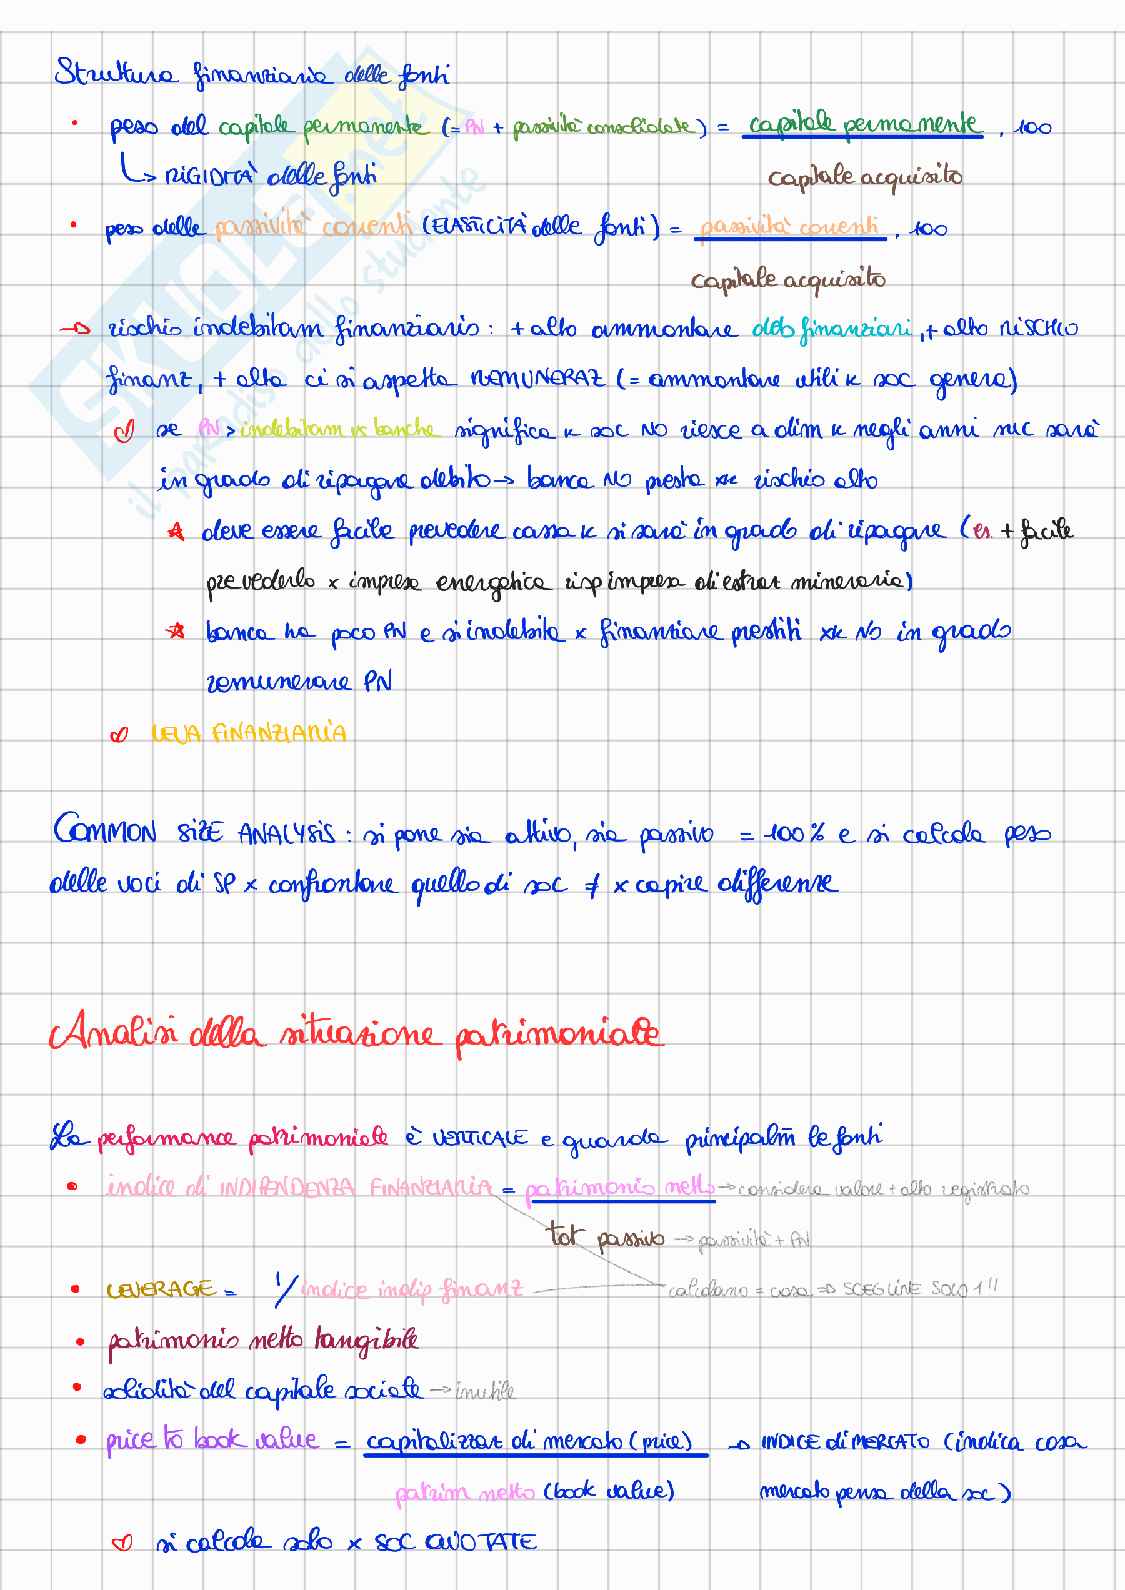 Struttura finanziaria delle fonti
• peso del capitale permanente (= PN + passività consolidate) = capitale permanente . 100
capitale acquisito
↳ RIGIDITÀ delle fonti
• peso delle passività correnti (ELASTICITÀ delle fonti) = passività correnti . 100
capitale acquisito
→ rischio indebitam finanziario: + alto ammontare deb finanziari, + alto RISCHIO
finanz, + alta ci si aspetta REMUNERAZ (= ammontare utili k soc genera)
se PN > indebitam vs banche significa k soc NO riesce a dim k negli anni suc sarà
in grado di ripagare debito → banca NO presta xk rischio alto
★ deve essere facile prevedere cassa k si sarà in grado di ripagare (es. + facile
prevederlo x impresa energetica risp impresa di estraz mineraria)
★ banca ha poco PN e si indebita x finanziare prestiti xk NO in grado
remunerare PN
LEVA FINANZIARIA
COMMON SIZE ANALYSIS: si pone sia attivo, sia passivo = 100% e si calcola peso
delle voci di SP x confrontare quello di soc ≠ x capire differenze
Analisi della situazione patrimoniale
La performance patrimoniale è VERTICALE e guarda principalm le fonti
• indice di INDIPENDENZA FINANZIARIA = patrimonio netto → considera valore + alto registrato
tot passivo → passività + PN
• LEVERAGE = 1/indice indip finanz
calcolano = cosa ⇒ SCEGLINE SOLO 1!!
• patrimonio netto tangibile
• solidità del capitale sociale → inutile
• price to book value = capitalizzaz di mercato (price) → INDICE di MERCATO (indica cosa
patrim netto (book value) mercato pensa della soc)
si calcola solo x SOC QUOTATE
SKUOLA.net
il paradiso dello studente